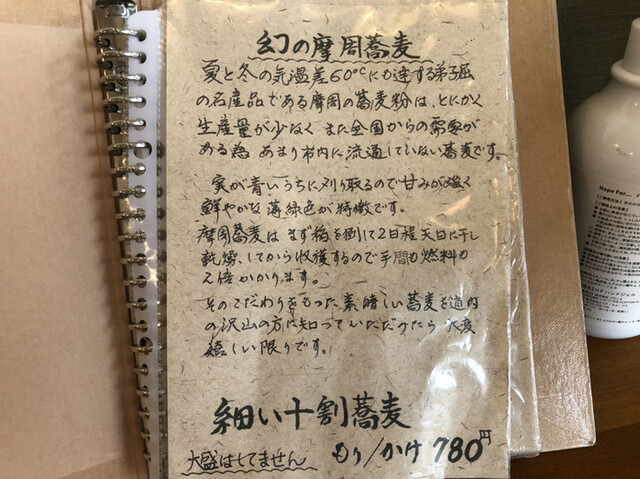 幻の摩周蕎麦
夏と冬の気温差60℃にも達する弟子屈
の名産品である摩周の蕎麦粉は、とにかく
生産量が少なく また全国からの需要が
ある為 あまり市内に流通していない蕎麦です。
実が青いうちに刈り取るので甘みが強く
鮮やかな薄緑色が特徴です。
摩周蕎麦は まず稲を倒して2日程天日に干し
乾燥してから収穫するので手間も燃料も
2倍かかります。
そのこだわりをもった素晴しい蕎麦を道内
の沢山の方に知っていただけたら 大変
嬉しい限りです。
細い十割蕎麦
大盛はしてません もり/かけ 780円
Hope For...